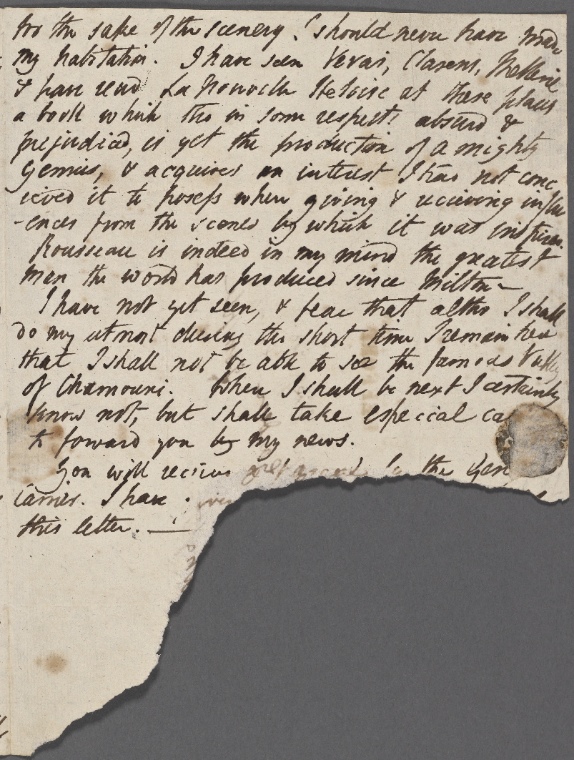 for the sake of the scenery. I should never have made
my habitation. I have seen Vevai, Clarens, Meillerie
& have read La Nouvelle Heloise at these places
a book which tho in some respects absurd &
prejudiced, is yet the production of a mighty
Genius, & acquires an interest I had not conc
eived it to possess when giving & recieving influ
-ences from the scenes by which it was inspired.
Rousseau is indeed in my mind the greatest
man the world has produced since Milton—
I have not yet seen, & fear that altho I shall
do my utmost during the short time I remain here
that I shall not be able to see the famous Valley
of Chamouni. When I shall be next I certainly
know not, but shall take especial ca
to forward you by my news.
You will recieve the Gen
carrier. I have
this letter. —